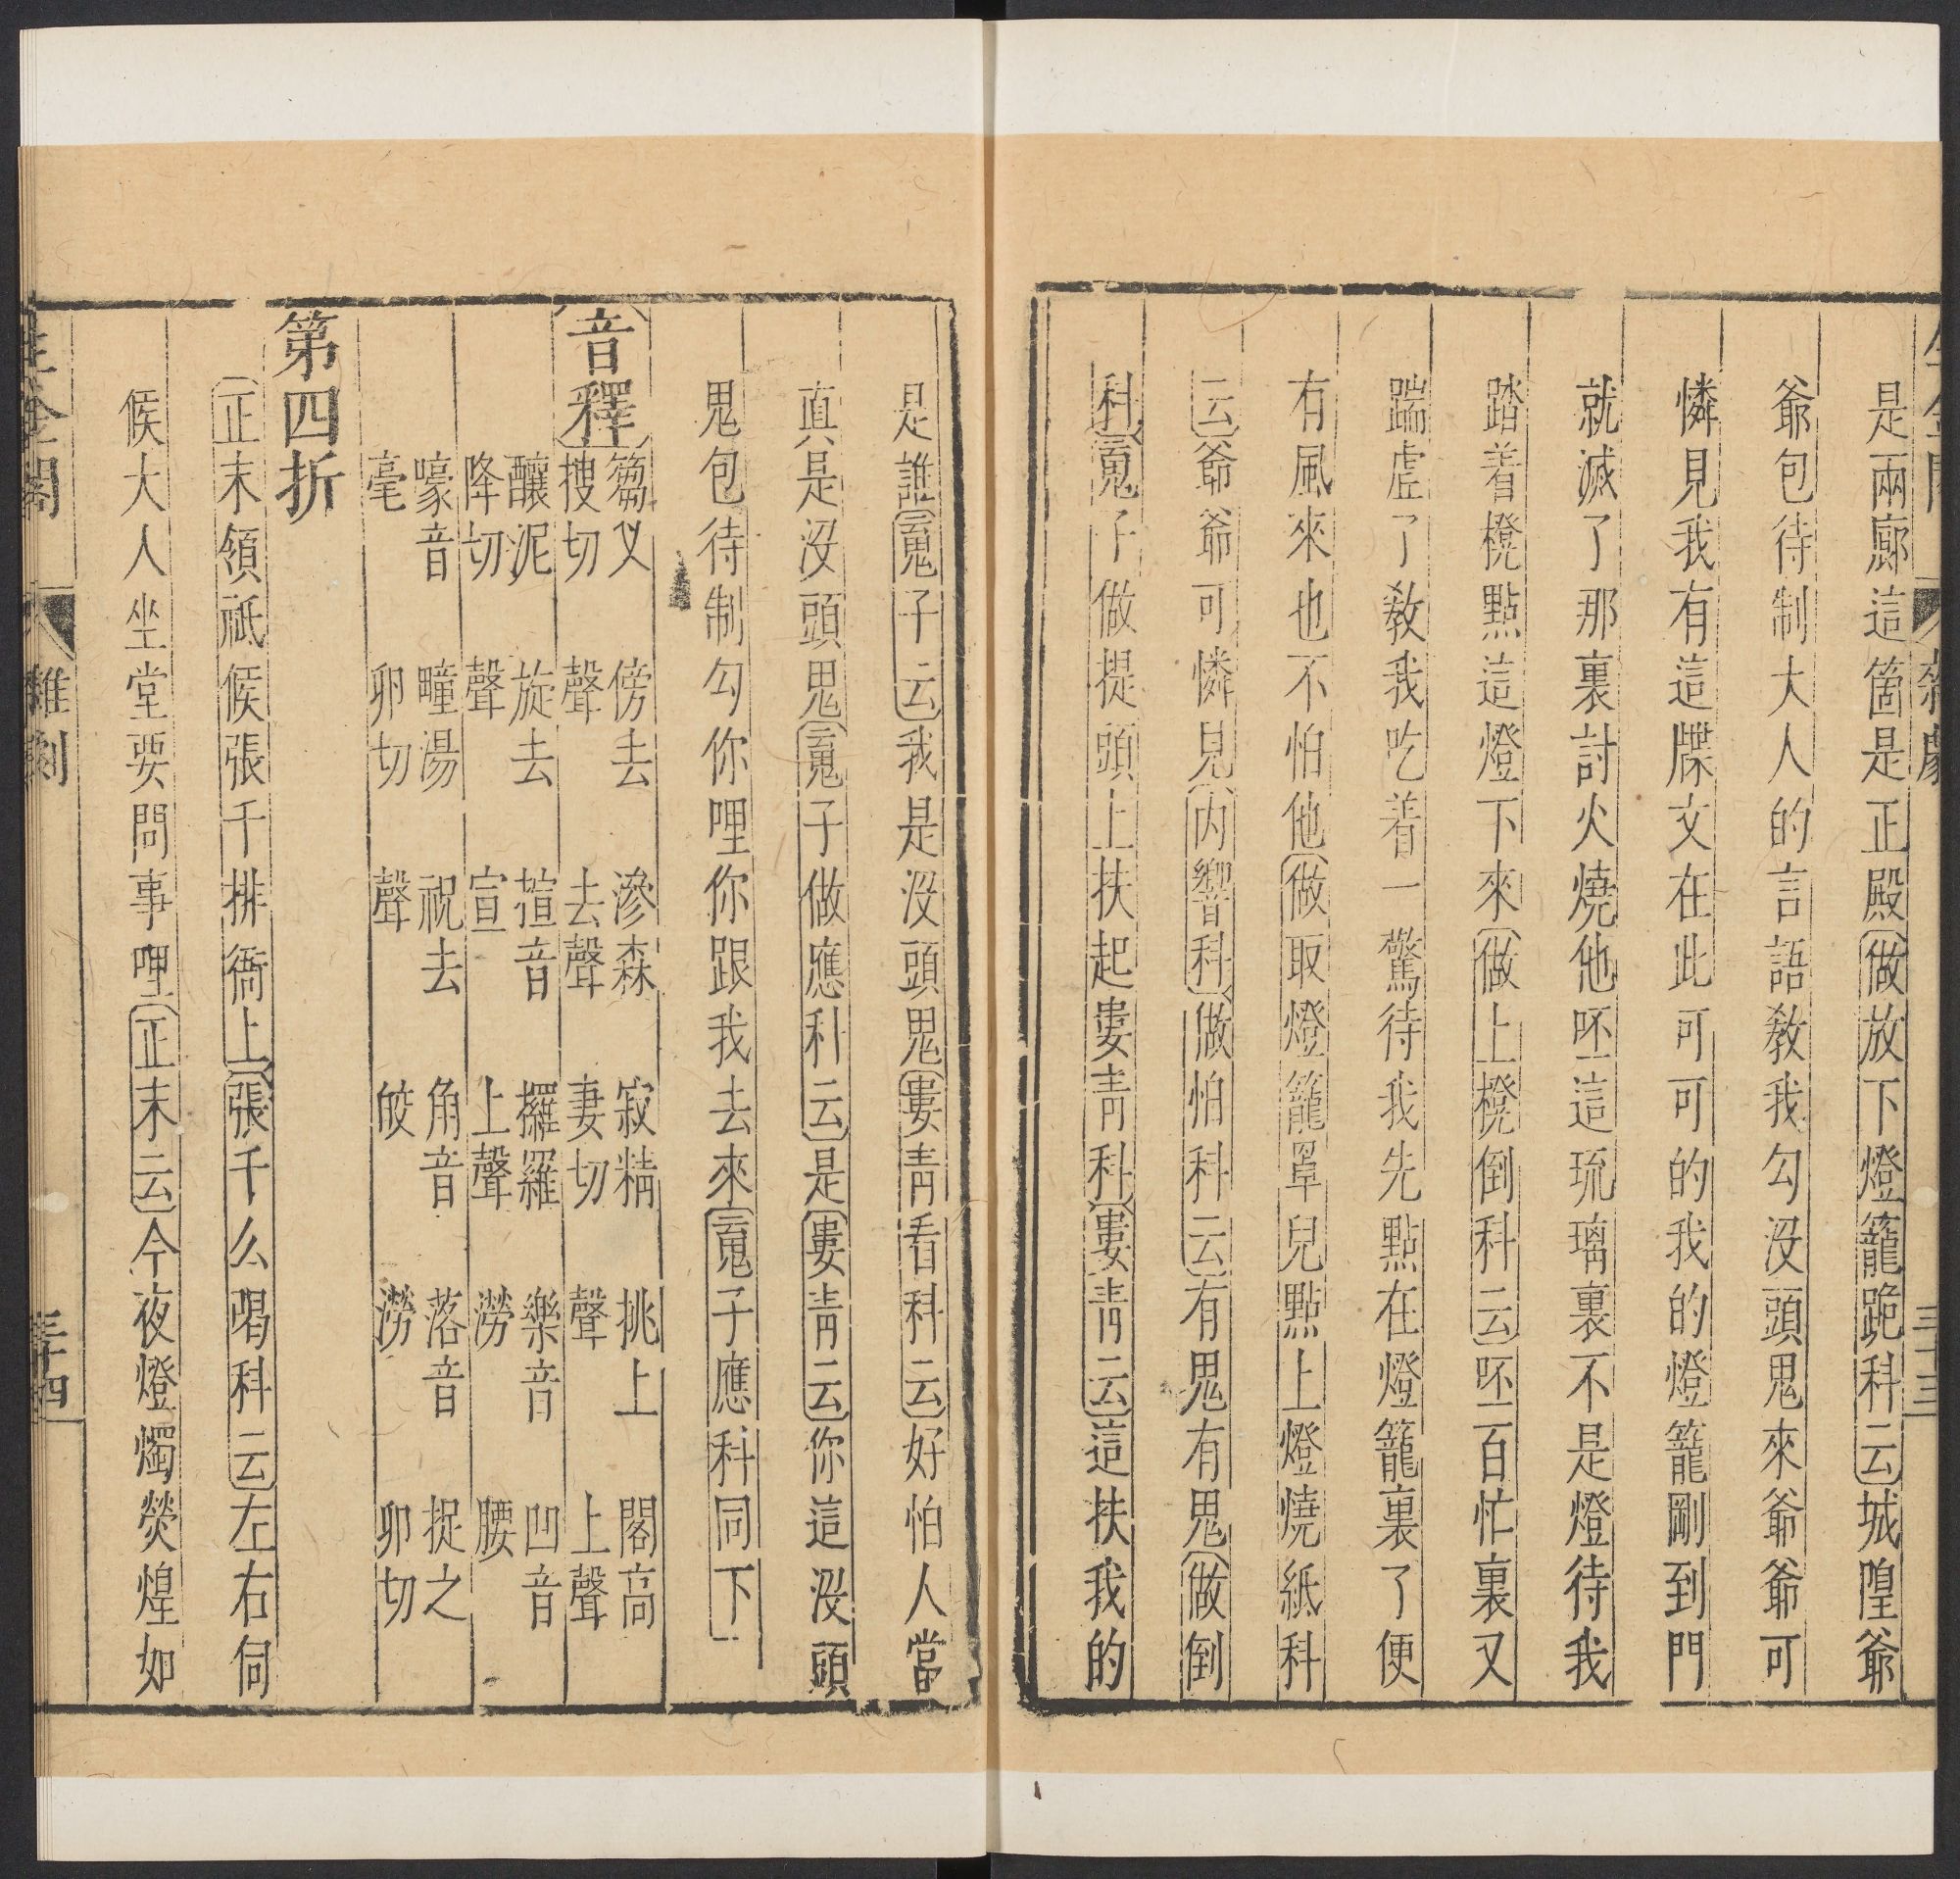 生金閣 雜劇 三十三
是兩廊這箇是正殿做放下燈籠跪科云城隍爺
爺包待制大人的言語教我勾没頭鬼來爺爺可
憐見我有這牒文在此可可的我的燈籠剛到門
就滅了那裏討火燒他呸這琉璃裏不是燈待我
踏着櫈點這燈下來做上櫈倒科云呸百忙裏又
踹虛了教我吃着一驚待我先點在燈籠裏了便
有風來也不怕他做取燈籠罩兒點上燈燒紙科
云爺爺可憐見内響科做怕科云有鬼有鬼做倒
科䰟子做提頭上扶起婁青科婁青云這扶我的
是誰䰟子云我是没頭鬼婁青看科云好怕人當
真是没頭鬼䰟子做應科云是婁青云你這没頭
鬼包待制勾你哩你跟我去來䰟子應科同下
音釋 篘叉搜切 傍去聲 滲森去聲 寂精妻切 挑上聲 閣高上聲
釀泥降切 旋去聲 揎音宣 攞羅上聲 樂音澇 凹音腰
嚎音毫 疃湯卵切 祝去聲 角音皎 落音澇 捉之卯切
第四折
正末領祗候張千排衙上張千么喝科云左右伺
候大人坐堂要問事哩正末云今夜燈燭熒煌如
生金閣 雜劇 三十四